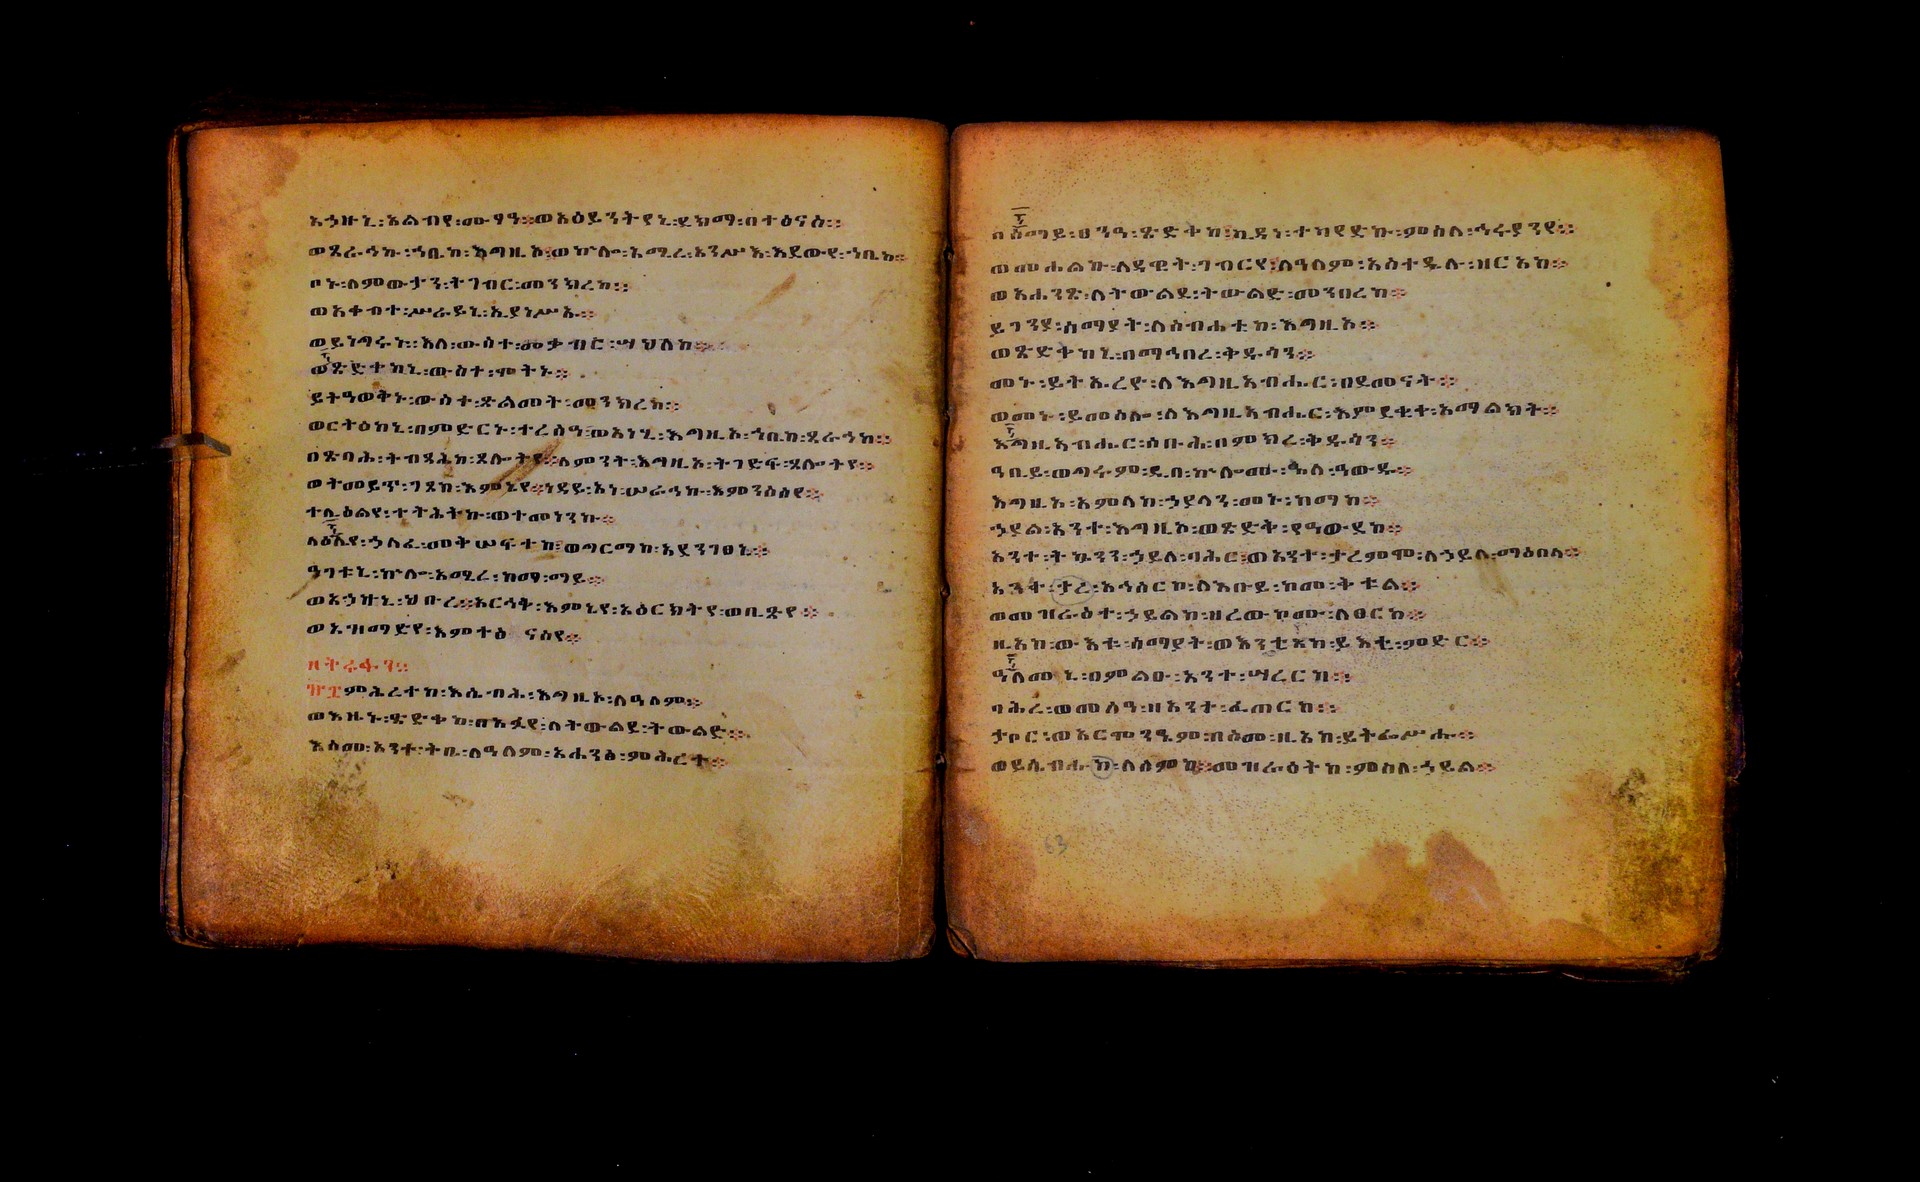 አኀዙኒ፡አልብየ፡ሙፃዓ።ወአዕይንትየኒ፡ደክማ፡በተፅናስ።
ወጸራኅኩ፡ኀቤከ፡እግዚኦ፡ወኵሎ፡አሚረ፡አንሥእ፡እደውየ፡ኀቤከ።
ቦኑ፡ለምውታን፡ትገብር፡መንክረከ።
ወአቀብተ፡ሥራይኒ፡ኢያነሥኡ።
ወይነግሩኑ፡እለ፡ውስተ፡መቃብር፡ሣህለከ።
ወጽድቀከኒ፡ውስተ፡ሞትኑ።
ይትዓወቅኑ፡ውስተ፡ጽልመት፡መንክረከ።
ወርትዕከኒ፡በምድርኑ፡ተረስዓ፡ወአነሂ፡እግዚኦ፡ኀቤከ፡ጸራኅኩ።
በጽባሕ፡ትብጻሕከ፡ጸሎትየ።ለምንት፡እግዚኦ፡ትገድፍ፡ጸሎትየ።
ወትመይጥ፡ገጸከ፡እምኔየ።ነዳይ፡አነ፡ሠራኅኩ፡እምንእስየ።
ተለዕልየ፡ተትሕትኩ፡ወተመነንኩ።
ላዕሌየ፡ኀለፈ፡መትሠፍትከ፡ወግርማከ፡አደንገፀኒ።
ዓገቱኒ፡ኵሎ፡አሚረ፡ከማ፡ማይ።
ወአኀዙኒ፡ኅቡረ።አርኀቅ፡እምኔየ፡አዕርክትየ፡ወቢጽየ።
ወአዝማድየ፡እምተፅናስየ።
ዘትራፋን።
፹፰ምሕረተከ፡እሴብሕ፡እግዚኦ፡ለዓለም።
ወእዜኑ፡ጽድቀከ፡በአፉየ፡ለትውልደ፡ትውልድ።
እስመ፡አንተ፡ትቤ፡ለዓለም፡አሐንፅ፡ምሕረተ።
በሰማይ፡ፀንዓ፡ጽድቅከ፡ኪዳነ፡ተካየድኩ፡ምስለ፡ኅሩያንየ።
ወመሐልኩ፡ለዳዊት፡ገብርየ፡ለዓለም፡አስተዴሉ፡ዝርአከ።
ወአሐንጽ፡ለትውልደ፡ትውልድ፡መንበረከ።
ይገንያ፡ሰማያት፡ለስብሐቲከ፡እግዚኦ።
ወጽድቅከኒ፡በማኅበረ፡ቅዱሳን።
መኑ፡ይትኤረዮ፡ለእግዚአብሔር፡በደመናት።
ወመኑ፡ይመስሎ፡ለእግዚአብሔር፡እምደቂቀ፡አማልክት።
እግዚአብሔር፡ስቡሕ፡በምክረ፡ቅዱሳን።
ዓቢይ፡ወግሩም፡ዲበ፡ኵሎሙ፡እለ፡ዓውዱ።
እግዚኦ፡አምላከ፡ኃያላን፡መኑ፡ከማከ።
ኃያል፡አንተ፡እግዚኦ፡ወጽድቅ፡የዓውደከ።
አንተ፡ትኴንን፡ኃይለ፡ባሕር፡ወአንተ፡ታረምሞ፡ለኃይለ፡ማዕበላ።
አንተ፡ታረ፡አኅሰርኮ፡ለእቡይ፡ከመ፡ቅቱል።
ወመዝራዕተ፡ኃይልከ፡ዘረውኮሙ፡ለፀርከ።
ዚአከ፡ውእቱ፡ሰማያት፡ወእንቲአከ፡ይእቲ፡ምድር።
ዓለመኒ፡በምልዑ፡አንተ፡ሣረርከ።
ባሕረ፡ወመስዓ፡ዘአንተ፡ፈጠርከ።
ታቦር፡ወአርሞንዔም፡በስመ፡ዚአከ፡ይትፌሥሑ።
ወይሴብሑከ፡ለስምከ።መዝራዕትከ፡ምስለ፡ኃይል።
63